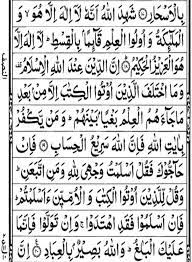 بِالْاَسْحَارِ ۝ شَهِدَ اللّٰهُ اَنَّهٗ لَاۤ اِلٰهَ اِلَّا هُوَ ۙ وَ
الْمَلٰٓئِكَةُ وَاُولُوا الْعِلْمِ قَآئِمًۢا بِالْقِسْطِ ؕ لَاۤ اِلٰهَ اِلَّا
هُوَ الْعَزِيْزُ الْحَكِيْمُ ۝ اِنَّ الدِّيْنَ عِنْدَ اللّٰهِ الْاِسْلَامُ ۫
وَمَا اخْتَلَفَ الَّذِيْنَ اُوْتُوا الْكِتٰبَ اِلَّا مِنْۢ بَعْدِ
مَا جَآءَهُمُ الْعِلْمُ بَغْيًۢا بَيْنَهُمْ ؕ وَمَنْ يَّكْفُرْ
بِاٰيٰتِ اللّٰهِ فَاِنَّ اللّٰهَ سَرِيْعُ الْحِسَابِ ۝ فَاِنْ
حَآجُّوْكَ فَقُلْ اَسْلَمْتُ وَجْهِيَ لِلّٰهِ وَمَنِ اتَّبَعَنِ ؕ
وَقُلْ لِّلَّذِيْنَ اُوْتُوا الْكِتٰبَ وَالْاُمِّيّٖنَ ءَاَسْلَمْتُمْ ؕ
فَاِنْ اَسْلَمُوْا فَقَدِ اهْتَدَوْا ۚ وَاِنْ تَوَلَّوْا فَاِنَّمَا
عَلَيْكَ الْبَلٰغُ ؕ وَاللّٰهُ بَصِيْرٌۢ بِالْعِبَادِ ۝ اِنَّ